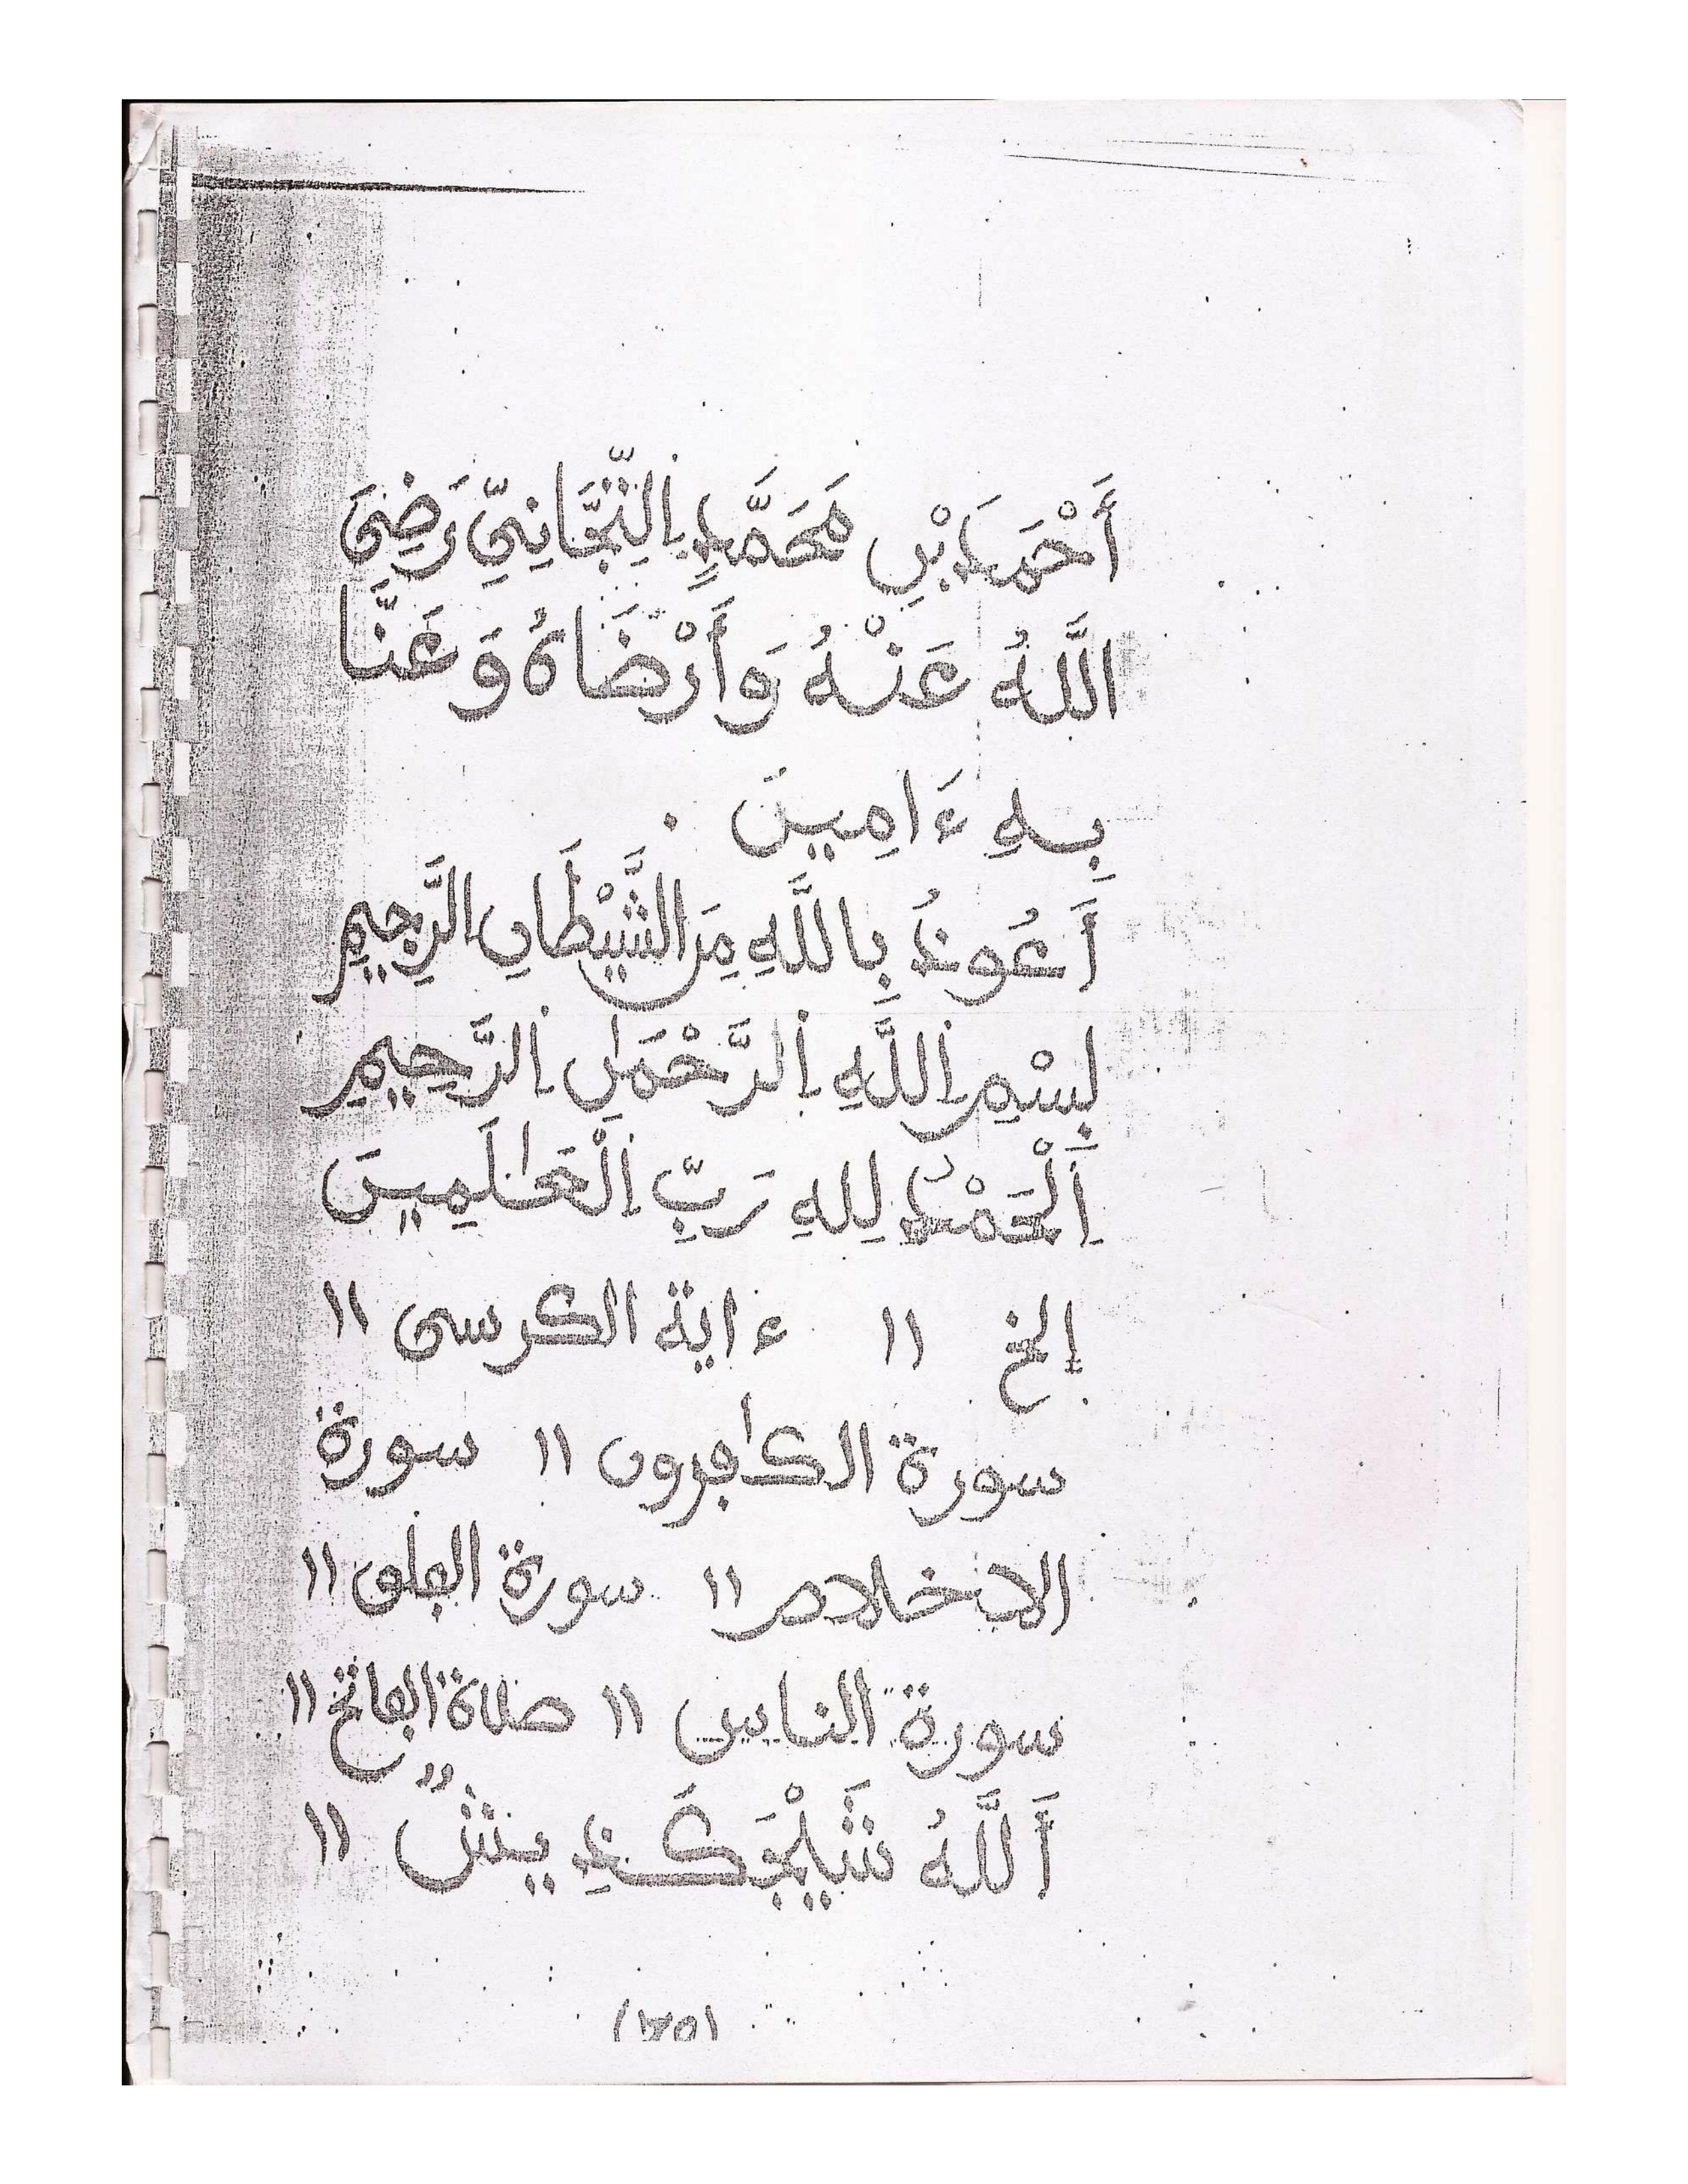 أَحْمَدَ بْنِ مُحَمَّدٍ اِلتِّجَانِيِّ رَضِيَ
اللَّهُ عَنْهُ وَأَرْضَاهُ وَعَنَّا
بِهِ ءَامِينَ .
أَعُوذُ بِاللَّهِ مِنَ الشَّيْطَانِ الرَّجِيمِ
بِسْمِ اِللَّهِ اِلرَّحْمَٰنِ اِلرَّحِيمِ
اَلْحَمْدُ لِلهِ رَبِّ اِلْعَٰلَمِينَ
إلخ ١١ ءاية الكرسى ١١
سورة الكٰفرون ١١ سورة
الاخلاص ١١ سورة الفلق ١١
سورة الناس ١١ صلاة الفاتح ١١
أَللَّهُ ١١